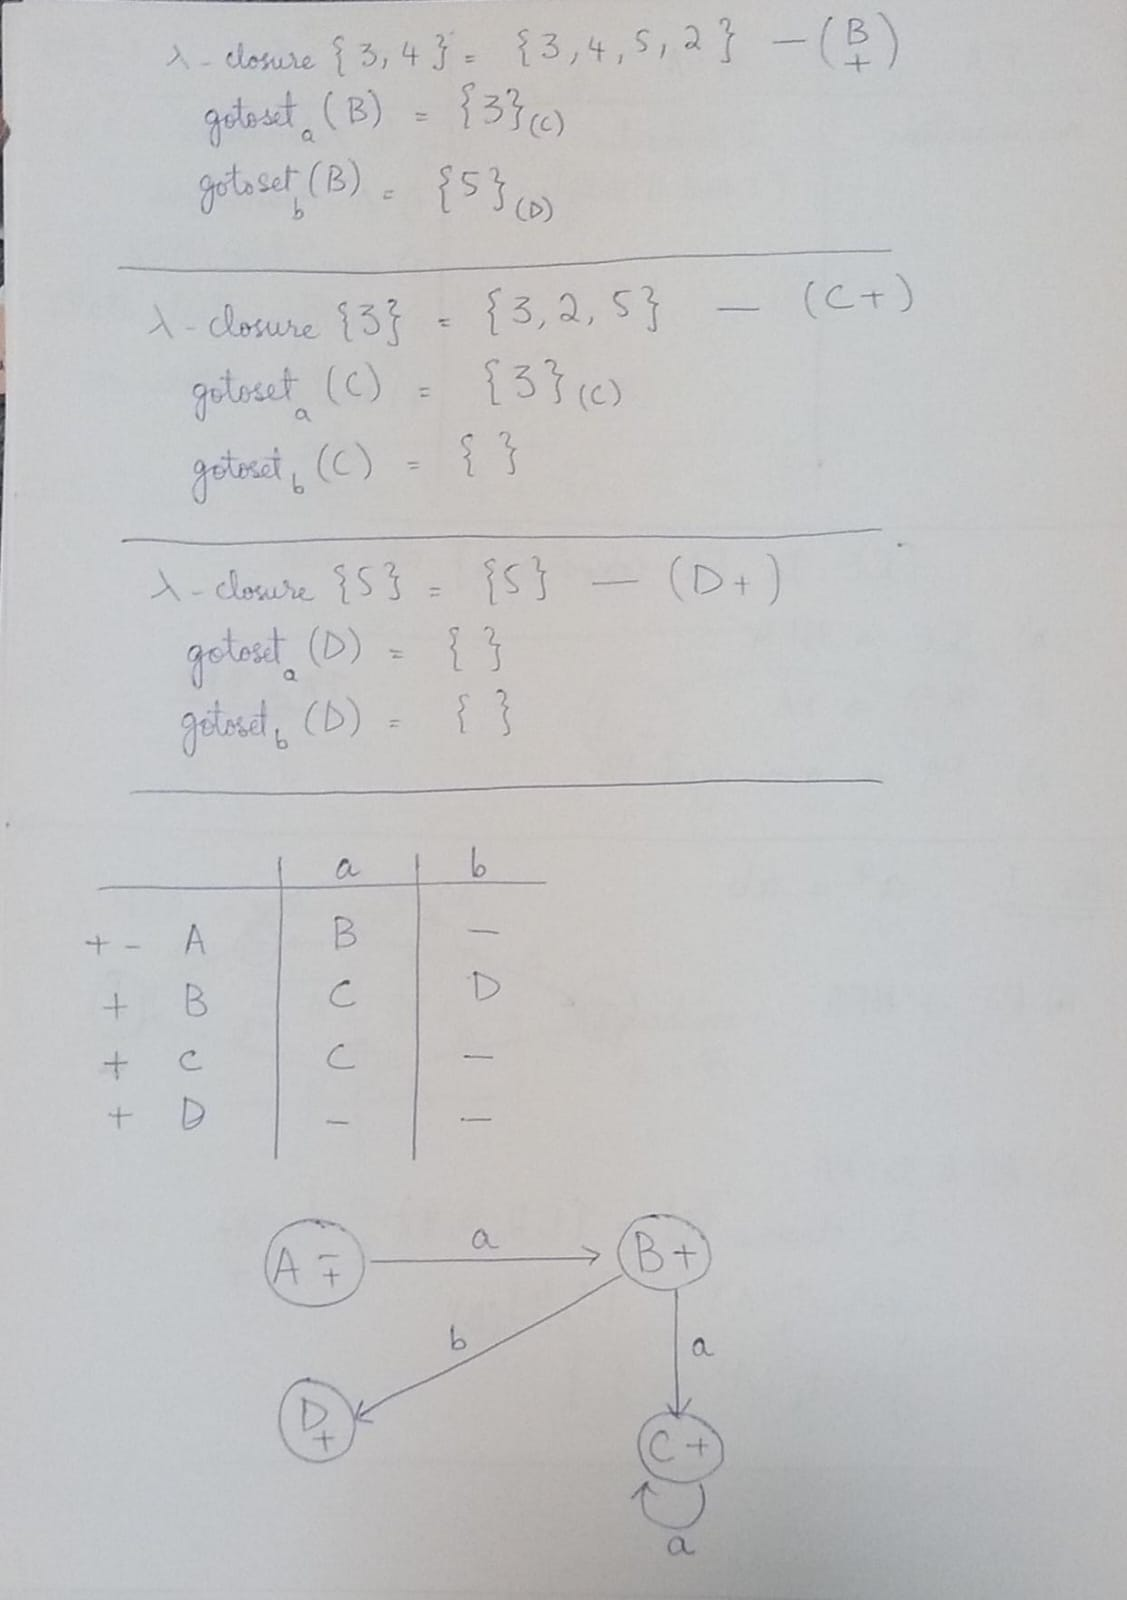 λ-closure {3,4} = {3,4,5,2} — (B +)
gotoset a (B) = {3}(C)
gotoset b (B) = {5}(D)
λ-closure {3} = {3,2,5} — (C+)
gotoset a (C) = {3}(C)
gotoset b (C) = { }
λ-closure {5} = {5} — (D+)
gotoset a (D) = { }
gotoset b (D) = { }
a b
+ - A B —
+ B C D
+ C C —
+ D - —
A -+ a B+
b a
D+
C+
a